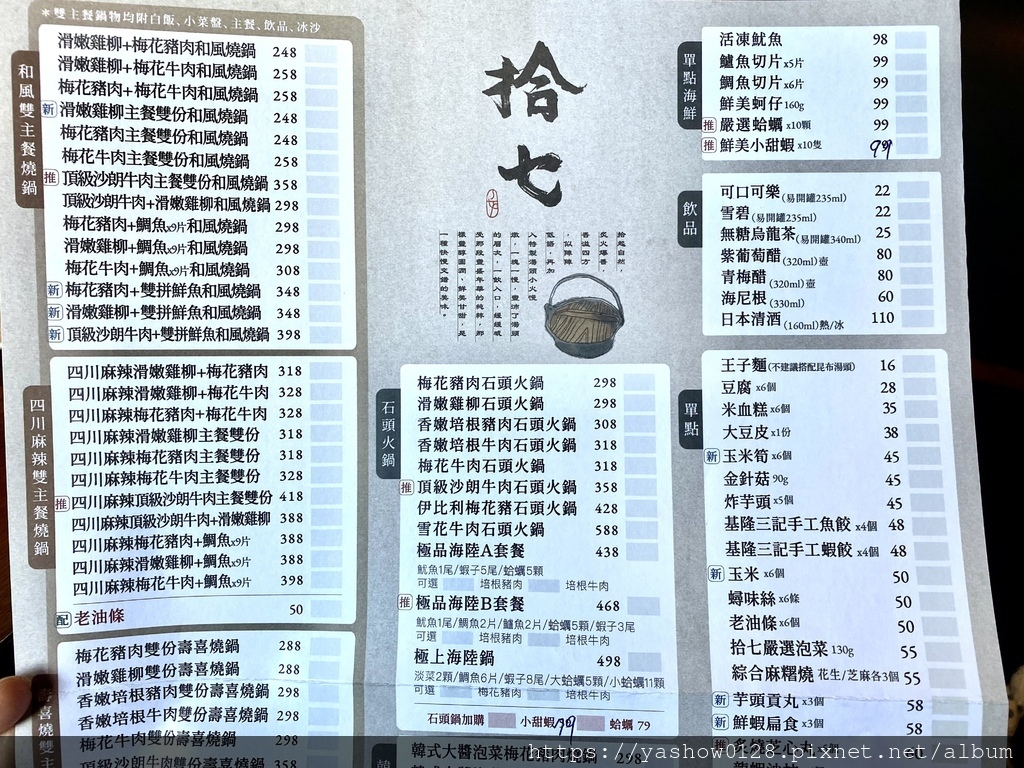 *雙主餐鍋物均附白飯、小菜盤、主餐、飲品、冰沙
和風雙主餐燒鍋
滑嫩雞柳+梅花豬肉和風燒鍋 248
滑嫩雞柳+梅花牛肉和風燒鍋 258
梅花豬肉+梅花牛肉和風燒鍋 258
新 滑嫩雞柳主餐雙份和風燒鍋 248
梅花豬肉主餐雙份和風燒鍋 248
梅花牛肉主餐雙份和風燒鍋 258
推 頂級沙朗牛肉主餐雙份和風燒鍋 358
頂級沙朗牛肉+滑嫩雞柳和風燒鍋 298
梅花豬肉+鯛魚x9片和風燒鍋 298
滑嫩雞柳+鯛魚x9片和風燒鍋 298
梅花牛肉+鯛魚x9片和風燒鍋 308
新 梅花豬肉+雙拼鮮魚和風燒鍋 348
新 滑嫩雞柳+雙拼鮮魚和風燒鍋 348
新 頂級沙朗牛肉+雙拼鮮魚和風燒鍋 398
四川麻辣雙主餐燒鍋
四川麻辣滑嫩雞柳+梅花豬肉 318
四川麻辣滑嫩雞柳+梅花牛肉 328
四川麻辣梅花豬肉+梅花牛肉 328
四川麻辣滑嫩雞柳主餐雙份 318
四川麻辣梅花豬肉主餐雙份 318
四川麻辣梅花牛肉主餐雙份 328
推 四川麻辣頂級沙朗牛肉主餐雙份 418
四川麻辣頂級沙朗牛肉+滑嫩雞柳 388
四川麻辣梅花豬肉+鯛魚x9片 388
四川麻辣滑嫩雞柳+鯛魚x9片 388
四川麻辣梅花牛肉+鯛魚x9片 398
配 老油條 50
壽喜燒雙主
梅花豬肉雙份壽喜燒鍋 288
滑嫩雞柳雙份壽喜燒鍋 288
香嫩培根豬肉雙份壽喜燒鍋 298
香嫩培根牛肉雙份壽喜燒鍋 298
梅花牛肉雙份壽喜燒鍋 298
358
拾七
拾起自然，
炙火爆香，
香溢四方
，似陣陣
低語，再加
入特製湯頭小火慢
燉，一塊一慢，豐沛了湯頭
的層次，一飲入口，緩緩感
受那段豐盛年華的純粹，那
樣豐醇圓潤，鮮美甘甜，是
一種快慢交錯的美味。
石頭火鍋
梅花豬肉石頭火鍋 298
滑嫩雞柳石頭火鍋 298
香嫩培根豬肉石頭火鍋 308
香嫩培根牛肉石頭火鍋 318
梅花牛肉石頭火鍋 318
推 頂級沙朗牛肉石頭火鍋 358
伊比利梅花豬石頭火鍋 428
雪花牛肉石頭火鍋 588
極品海陸A套餐 438
魷魚1尾/蝦子5尾/蛤蠣5顆
可選 培根豬肉 培根牛肉
推 極品海陸B套餐 468
魷魚1尾/鯛魚2片/鱸魚2片/蛤蠣5顆/蝦子3尾
可選 培根豬肉 培根牛肉
極上海陸鍋 498
淡菜2顆/鯛魚6片/蝦子8尾/大蛤蠣5顆/小蛤蠣11顆
可選 梅花豬肉 培根牛肉
石頭鍋加購 小甜蝦 99 蛤蠣 79
韓
韓式大醬泡菜梅花豬肉燒鍋 298
單點海鮮
活凍魷魚 98
鱸魚切片 x5片 99
鯛魚切片 x6片 99
鮮美蚵仔 160g 99
推 嚴選蛤蠣 x10顆 99
推 鮮美小甜蝦 x10隻 99
飲品
可口可樂(易開罐235ml) 22
雪碧(易開罐235ml) 22
無糖烏龍茶(易開罐340ml) 25
紫葡萄醋(320ml)壺 80
青梅醋(320ml)壺 80
海尼根(330ml) 60
日本清酒(160ml)熱/冰 110
單點
王子麵(不建議搭配昆布湯頭) 16
豆腐 x6個 28
米血糕 x6個 35
大豆皮 x1份 38
新 玉米筍 x6個 45
金針菇 90g 45
炸芋頭 x5個 45
基隆三記手工魚餃 x4個 48
基隆三記手工蝦餃 x4個 48
新 玉米 x6個 50
蟳味絲 x6條 50
老油條 x6個 50
拾七嚴選泡菜 130g 55
綜合麻糬燒 花生/芝麻各3個 55
新 芋頭貢丸 x3個 58
新 鮮蝦扁食 x3個 58
58
https://yashow0128.pixnet.net/album